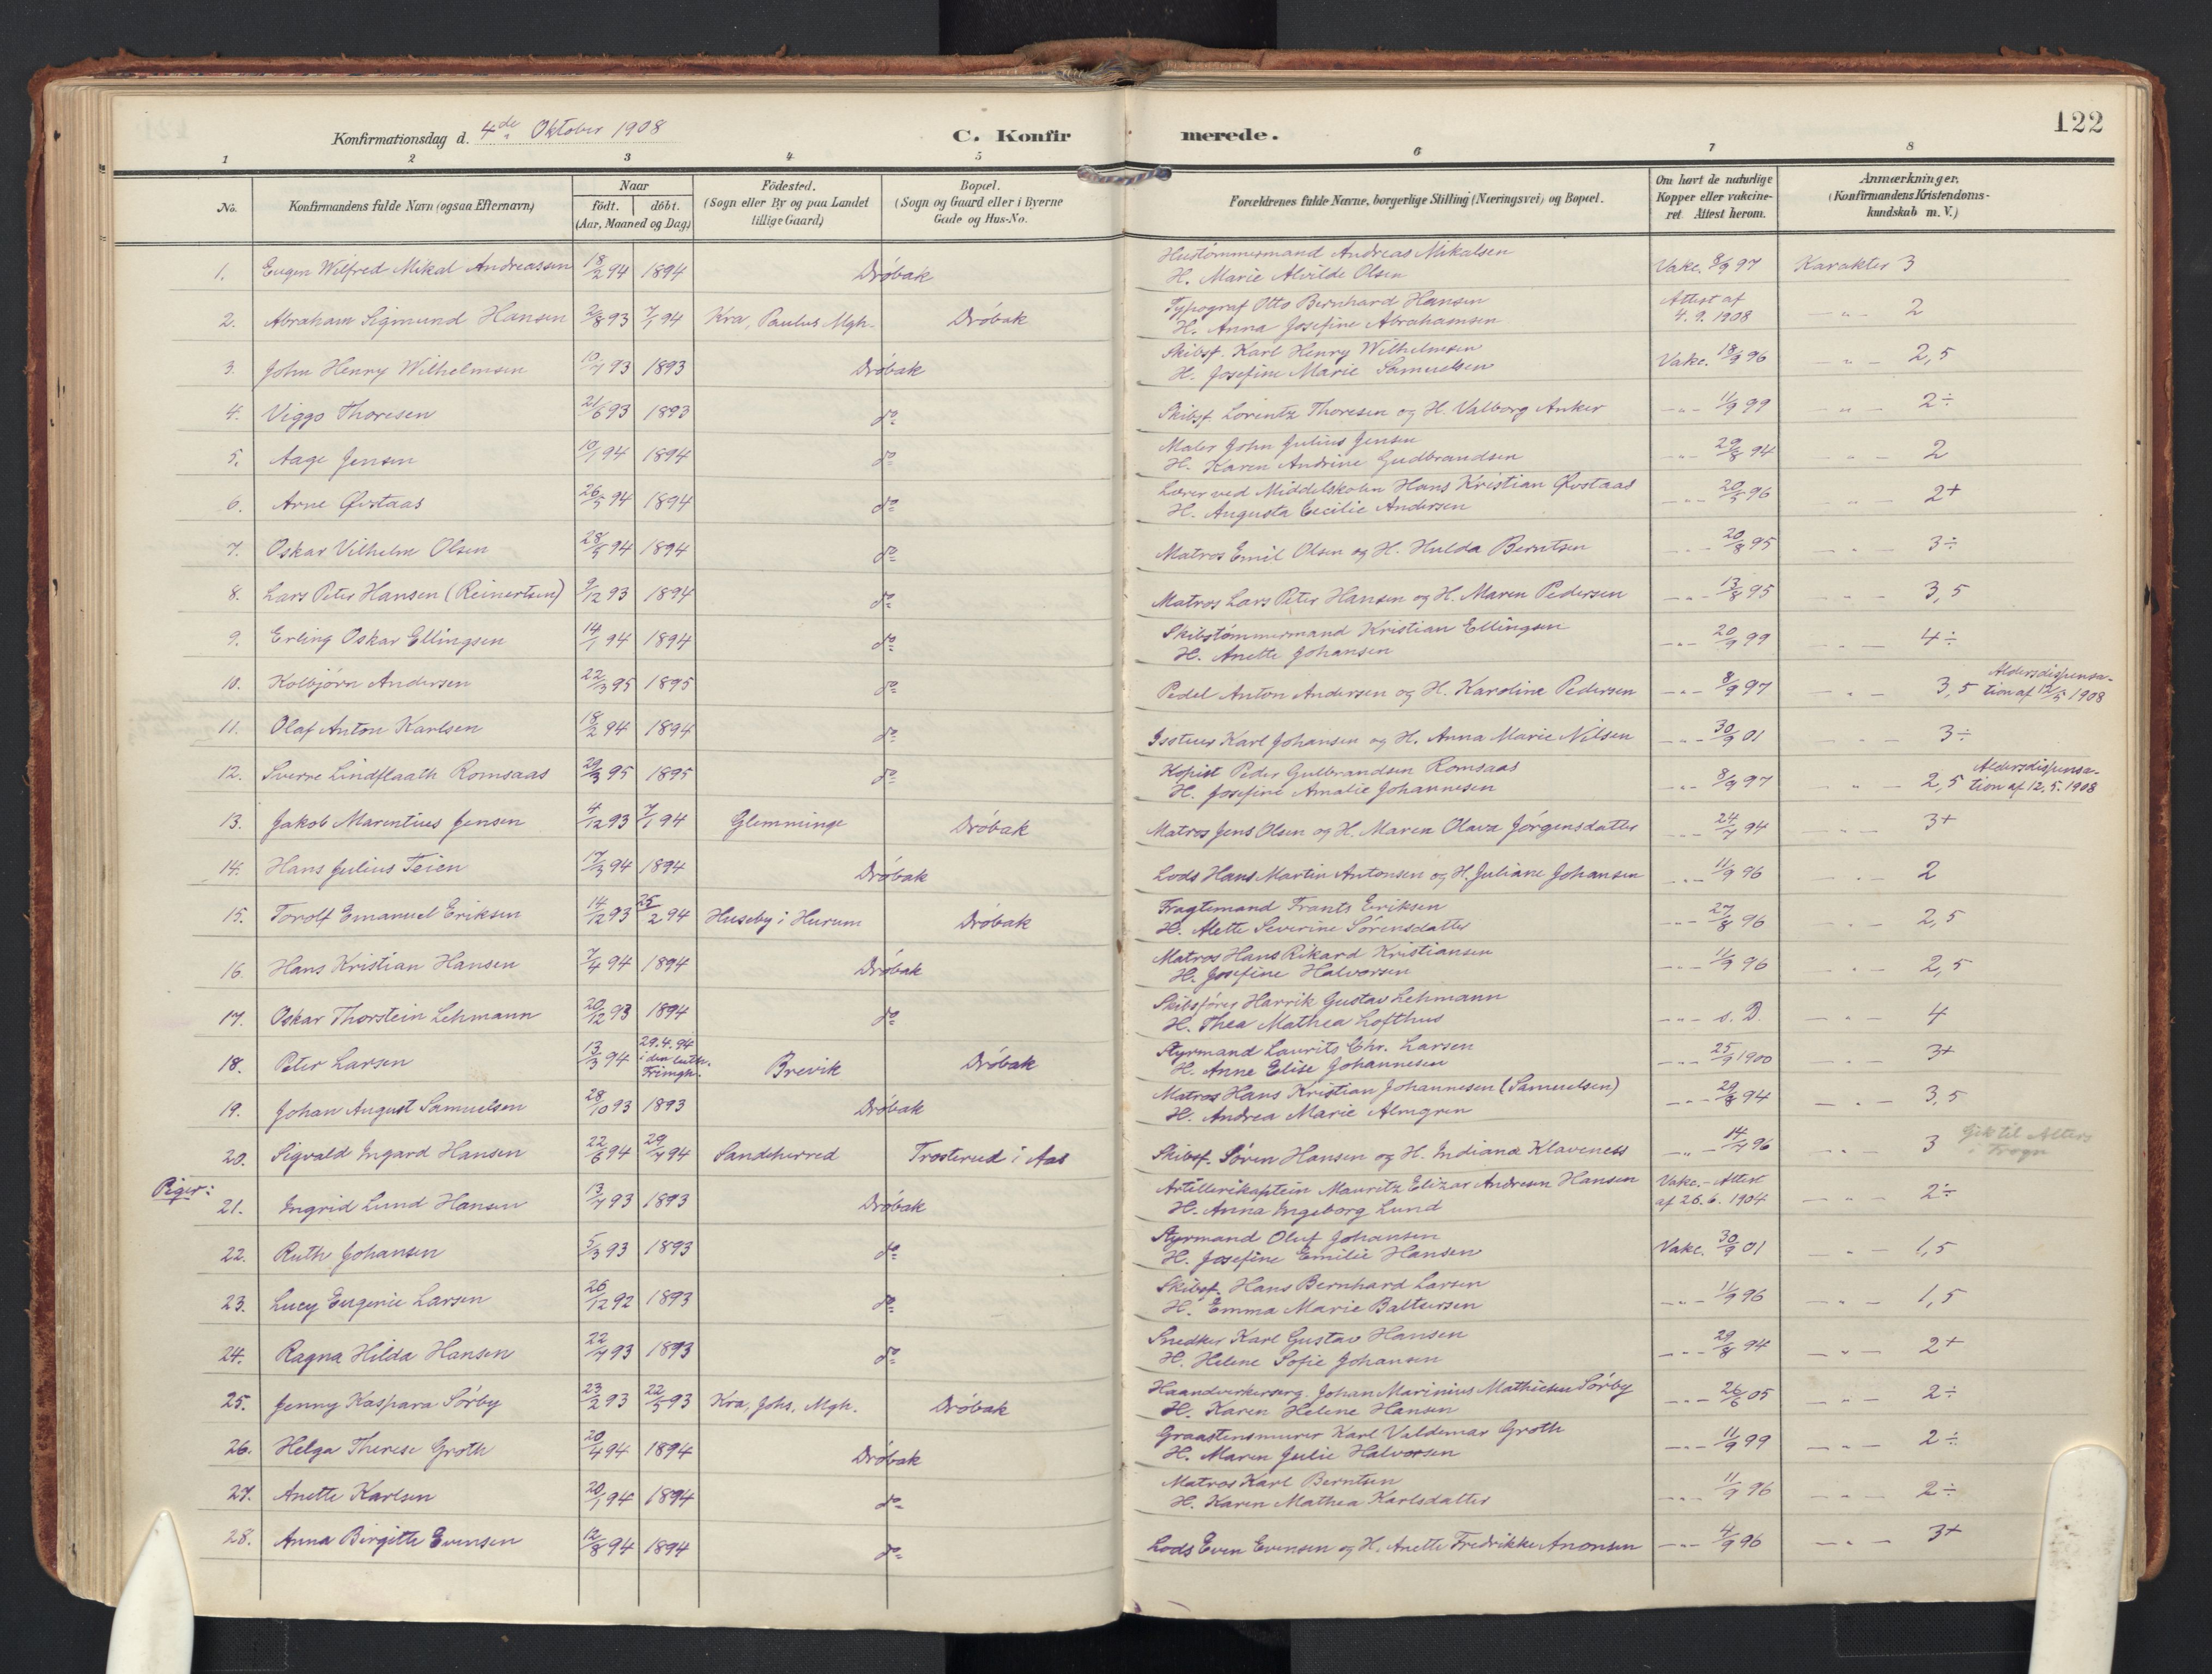 122
Konfirmationsdag d. 4de Oktober 1908
C. Konfir merede.
1 2 3 4 5 6 7 8
No.
Konfirmandens fulde Navn (ogsaa Efternavn)
Naar
født. døbt.
(Aar, Maaned og Dag)
Fødested.
(Sogn eller By og paa Landet
tillige Gaard)
Bopæl.
(Sogn og Gaard eller i Byerne
Gade og Hus-No.
Forældrenes fulde Navne, borgerlige Stilling (Næringsvei) og Bopæl.
Om havt de naturlige
Kopper eller vakcine-
ret Attest herom.
Anmærkninger.
(Konfirmandens Kristendoms-
kundskab m. V.)
1. Eugen Wilfred Mikal Andreassen 18/2 94 1894 Drøbak Hustømmermand Andreas Mikalsen
H. Marie Alvilde Olsen Vakc. 8/9 97 Karakter 3
2. Abraham Sigmund Hansen 2/8 93 7/1 94 Kra, Paulus Mgh. Drøbak Typograf Otto Bernhard Hansen
H. Anna Josefine Abrahamsen Attest af
4. 9. 1908 — " — 2
3. John Henry Wilhelmsen 10/7 93 1893 Drøbak Skibsf. Karl Henry Wilhelmsen
H. Josefine Marie Samuelsen Vakc. 18/9 96 — " — 2,5
4. Viggo Thoresen 21/6 93 1893 do Skibsf. Lorentz Thoresen og H. Valborg Anker — " — 11/9 99 — " — 2÷
5. Aage Jensen 10/1 94 1894 do Maler John Julius Jensen
H. Karen Andrine Gudbrandsen — " — 29/8 94 — " — 2
6. Arne Øvstaas 26/5 94 1894 do Lærer ved Middelskolen Hans Kristian Øvstaas
H. Augusta Cecilie Andersen — " — 20/5 96 — " — 2+
7. Oskar Vilhelm Olsen 28/5 94 1894 do Matros Emil Olsen og H. Hulda Berntsen — " — 20/8 95 — " — 3÷
8. Lars Peter Hansen (Reinertsen) 9/12 93 1894 do Matros Lars Peter Hansen og H. Maren Pedersen — " — 13/8 95 — " — 3,5
9. Erling Oskar Ellingsen 14/1 94 1894 do Skibstømmermand Kristian Ellingsen
H. Anette Johansen — " — 20/9 99 — " — 4÷
10. Kolbjørn Andersen 22/3 95 1895 do Pedel Anton Andersen og H. Karoline Pedersen — " — 8/9 97 — " — 3,5 Aldersdispensa-
tion af 12/5 1908
11. Olaf Anton Karlsen 18/2 94 1894 do Karl Johansen og H. Anna Marie Nilsen — " — 30/9 01 — " — 3÷
12. Sverre Lindflaath Romsaas 29/3 95 1895 do Kopist Peder Gulbrandsen Romsaas
H. Josefine Amalie Johannesen — " — 8/9 97 — " — 2,5 Aldersdispensa-
tion af 12. 5. 1908
13. Jakob Marentius Jensen 4/12 93 7/1 94 Glemminge Drøbak Matros Jens Olsen og H. Maren Olava Jørgensdatter — " — 24/7 94 — " — 3+
14. Hans Julius Teien 17/3 94 1894 Drøbak Lods Hans Martin Antonsen og H. Juliane Johansen — " — 11/9 96 — " — 2
15. Torolf Emanuel Eriksen 14/12 93 25/2 94 Huseby i Hurum Drøbak Fragtemand Frants Eriksen
H. Alette Severine Sørensdatter — " — 27/8 96 — " — 2,5
16. Hans Kristian Hansen 7/4 94 1894 Drøbak Matros Hans Rikard Kristiansen
H. Josefine Halvorsen — " — 11/9 96 — " — 2,5
17. Oskar Thorstein Lehmann 20/12 93 1894 do Skibsfører Harrik Gustav Lehmann
H. Thea Mathea Lofthus — " — s. D. — " — 4
18. Peter Larsen 13/3 94 29.4.94
i den luth.
Frimgh. Brevik Drøbak Styrmand Laurits Chr. Larsen
H. Anne Elise Johannesen — " — 25/9 1900 — " — 3+
19. Johan August Samuelsen 28/10 93 1893 Drøbak Matros Hans Kristian Johannesen (Samuelsen)
H. Andrea Marie Almgren — " — 29/8 94 — " — 3,5
20. Sigvald Ingard Hansen 22/6 94 29/7 94 Sandeherred Trosterud i Aas Skibsf. Søren Hansen og H. Indiana Klaveness — " — 14/7 96 — " — 3 Gik til Alters
i Frogn
Piger:
21. Ingrid Lund Hansen 13/7 93 1893 Drøbak Artillerikaptein Mauritz Elizar Andresen Hansen
H. Anna Ingeborg Lund Vakc.-Attest
af 26. 6. 1904 — " — 2÷
22. Ruth Johansen 5/3 93 1893 do Styrmand Oluf Johansen
H. Josefine Emilie Hansen Vakc. 30/9 01 — " — 1,5
23. Lucy Eugenie Larsen 26/12 92 1893 do Skibsf. Hans Bernhard Larsen
H. Emma Marie Baltsersen — " — 11/9 96 — " — 1,5
24. Ragna Hilda Hansen 22/7 93 1893 do Snedker Karl Gustav Hansen
H. Helene Sofie Johansen — " — 29/8 94 — " — 2+
25. Jenny Kaspara Sørby 23/2 93 22/5 93 Kra, Johs. Mgh. Drøbak Haandverkersvg. Johan Marinius Mathiesen Sørby
H. Karen Helene Hansen — " — 26/6 05 — " — 2÷
26. Helga Therese Groth 20/4 94 1894 Drøbak Graastensmurer Karl Valdemar Groth
H. Maren Julie Halvorsen — " — 11/9 99 — " — 2÷
27. Anette Karlsen 20/1 94 1894 do Matros Karl Berntsen
H. Karen Mathea Karlsdatter — " — 11/9 96 — " — 2÷
28. Anna Birgitte Evensen 12/8 94 1894 do Lods Even Evensen og H. Anette Fredrikke Anonsen — " — 4/9 96 — " — 3+